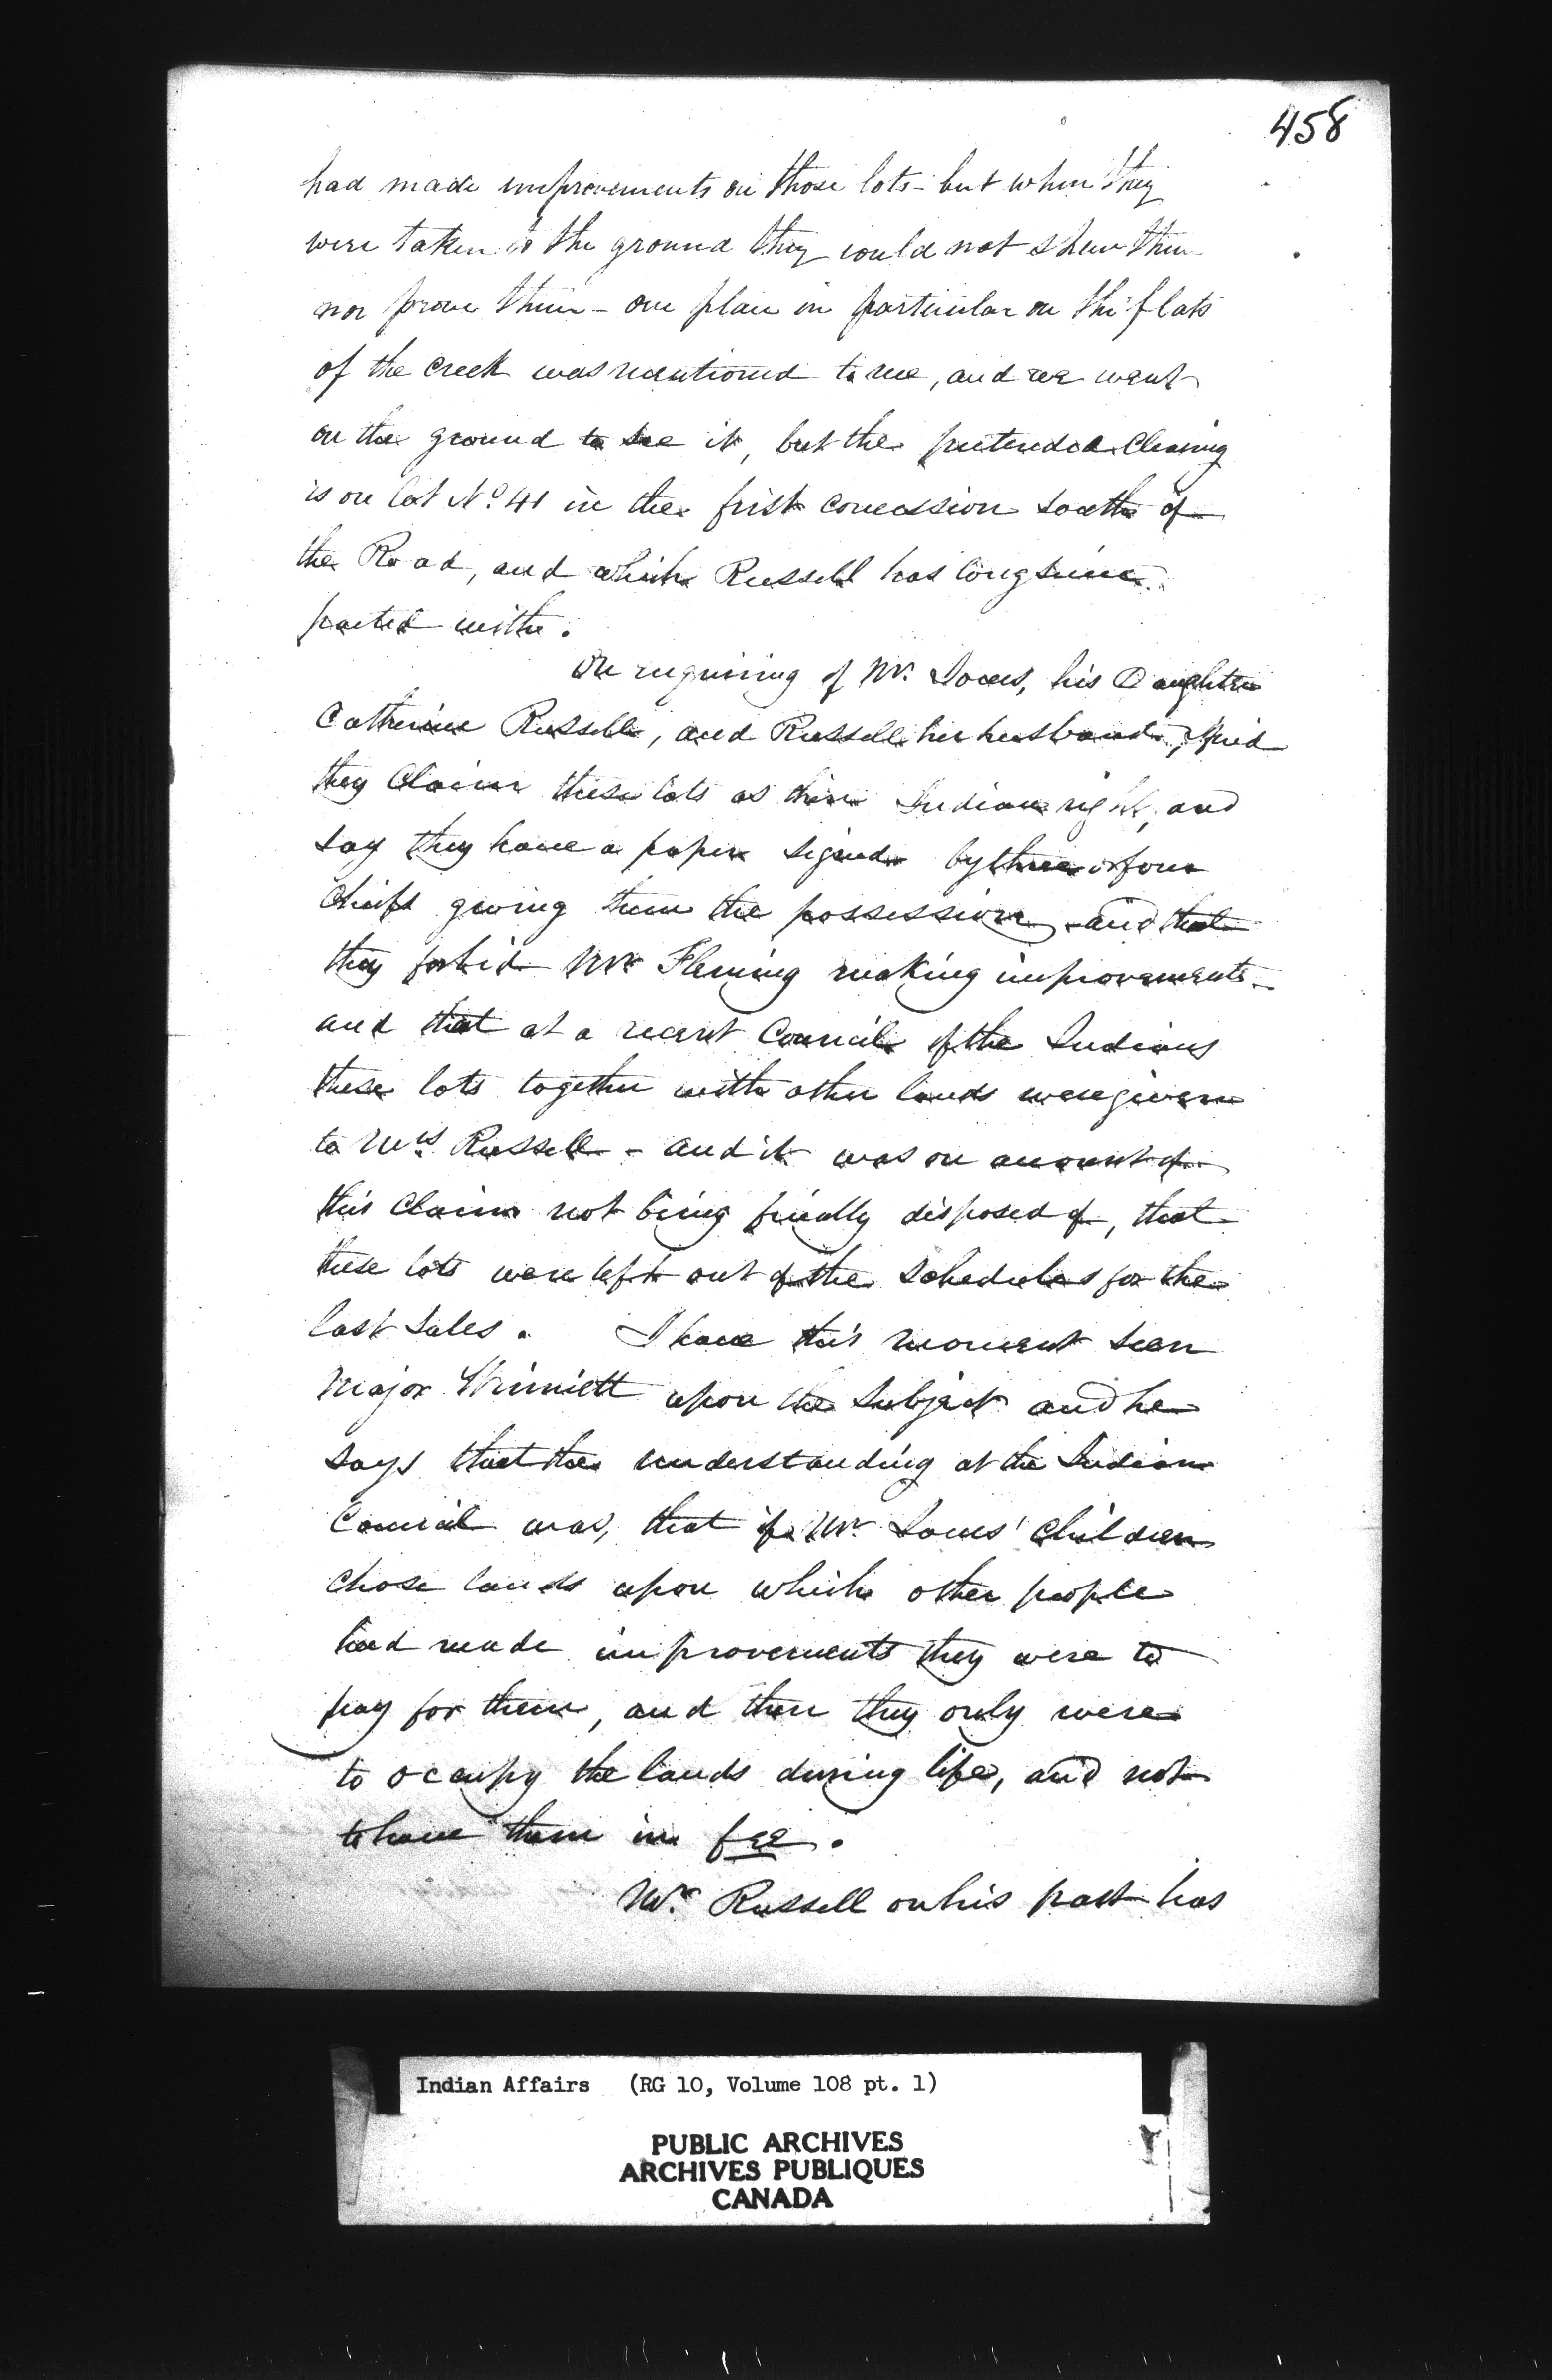 458
had made improvements on those lots - but when they
were taken to the ground they could not shew them
nor prove them - one place in particular on the flats
of the creek was mentioned to me, and we went
on the ground to see it, but the pretended Clearing
is on lot No. 41 in the first concession south of
the Road, and which Russell has long since
parted with.
On enquiring of Mr. Jones, his Daughter
Catherine Russell, and Russell her husband, I find
they Claim these lots as their Indian right, and
say they have a paper signed by three or four
Chiefs giving them the possession and that
they forbid Mr. Fleming making improvements -
and that at a recent Council of the Indians
these lots together with other lands were given
to Mrs. Russell - and it was on account of
this Claim not being finally disposed of, that
these lots were left out of the Schedules for the
last Sales. I have this moment seen
Major Winniett upon the Subject and he
says that the understanding at the Indian
Council was, that if Mr. Jones' Children
chose lands upon which other people
had made improvements they were to
pay for them, and then they only were
to occupy the lands during life, and not
to have them in fee.
Mr. Russell on his part has
Indian Affairs (RG 10, Volume 108 pt. 1)
PUBLIC ARCHIVES
ARCHIVES PUBLIQUES
CANADA